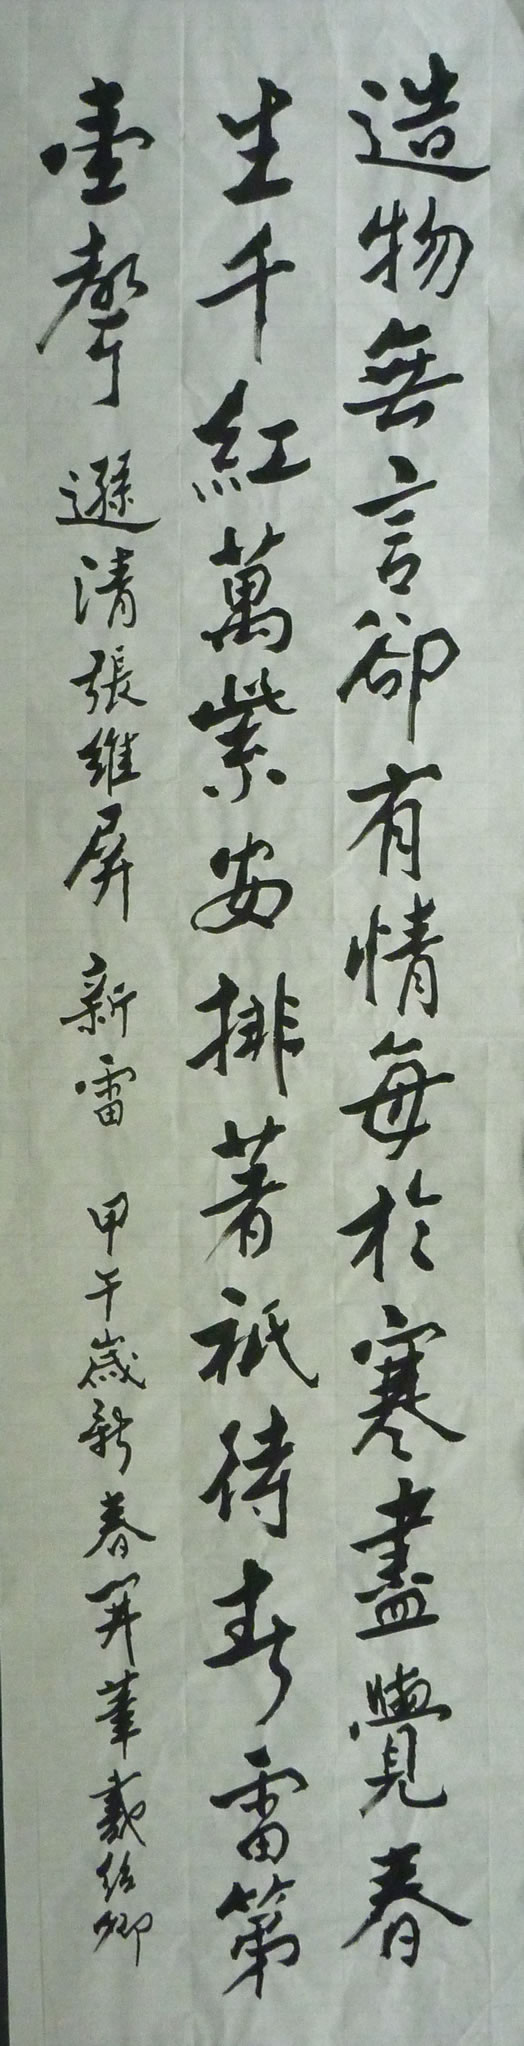 造物無言卻有情每於寒盡覺春
生千紅萬紫安排著祇待新雷第
壹聲 遜清張維屏 新雷 甲午歲新春開筆 卿